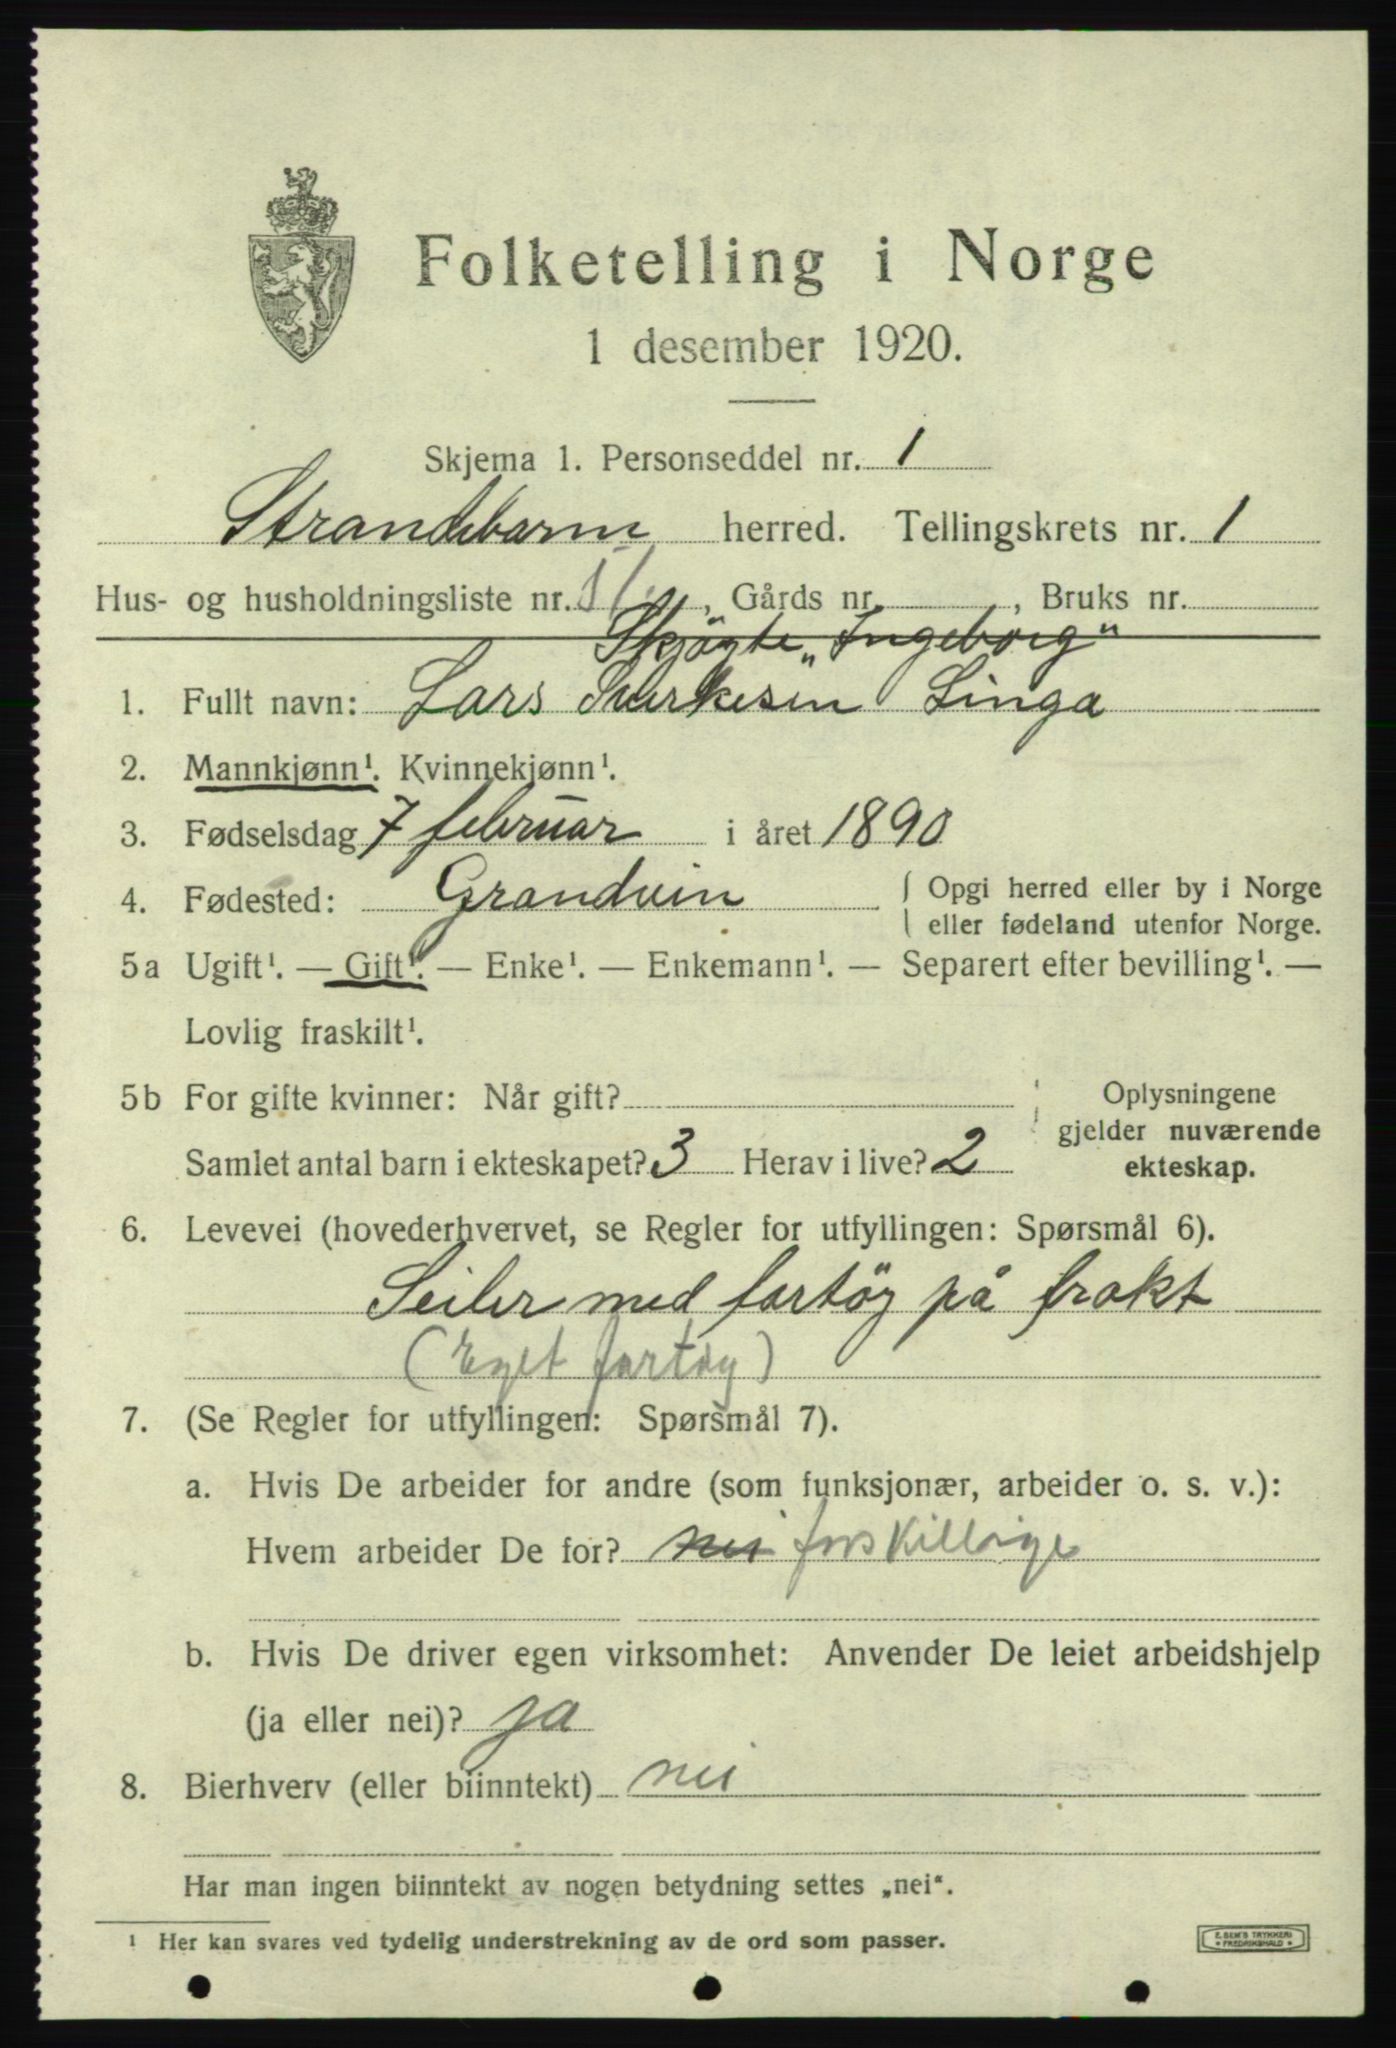 Folketelling i Norge
1 desember 1920.
Skjema 1. Personseddel nr. 1
Strandebarm herred. Tellingskrets nr. 1
Hus- og husholdningsliste nr. , Gårds nr. , Bruks nr.
Skjøgte „Ingeborg"
1. Fullt navn: Lars Sverkesen Linga
2. Mannkjønn¹. Kvinnekjønn¹.
3. Fødselsdag 7 februar i året 1890
4. Fødested: Grandvin { Opgi herred eller by i Norge
eller fødeland utenfor Norge.
5a Ugift¹. — Gift¹. — Enke¹. — Enkemann¹. — Separert efter bevilling¹. —
Lovlig fraskilt¹.
5b For gifte kvinner: Når gift? Oplysningene
gjelder nuværende
Samlet antal barn i ekteskapet? 3 Herav i live? 2 ekteskap.
6. Levevei (hovederhvervet, se Regler for utfyllingen: Spørsmål 6).
Seiler med fartöy på frakt
(Eget fartøy)
7. (Se Regler for utfyllingen: Spørsmål 7).
a. Hvis De arbeider for andre (som funksjonær, arbeider o. s. v.):
Hvem arbeider De for? nei forskillige
b. Hvis De driver egen virksomhet: Anvender De leiet arbeidshjelp
(ja eller nei)? ja
8. Bierhverv (eller biinntekt) nei
Har man ingen biinntekt av nogen betydning settes „nei“.
¹ Her kan svares ved tydelig understrekning av de ord som passer.
E. SEM'S TRYKKERI
* FREDRIKSHALD *